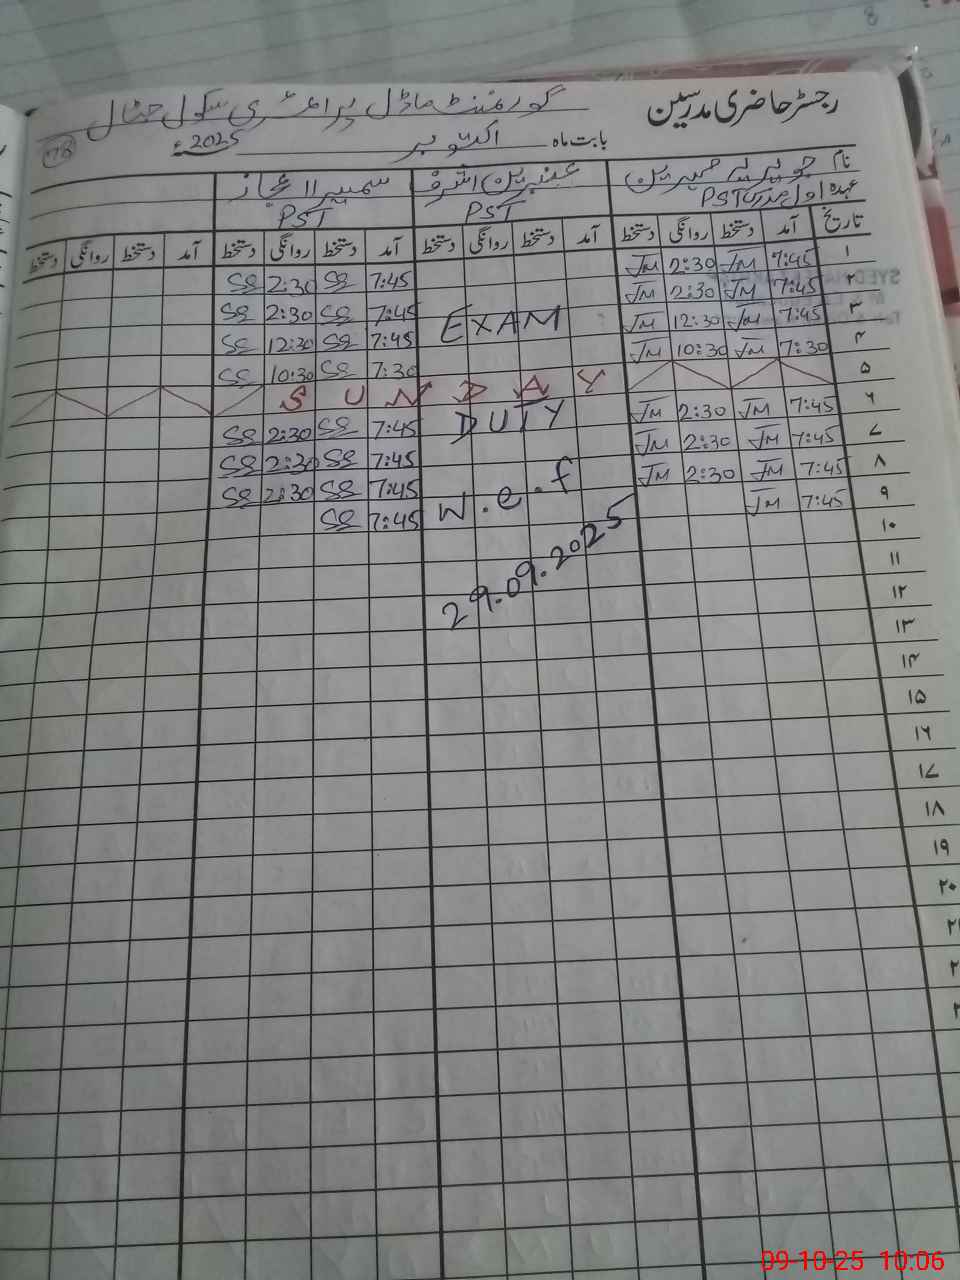 رجسٹر حاضری مدرسین
گورنمنٹ ماڈل پرائمری سکول جنال
بابت ماہ اکتوبر 2025ء
78
نام جویریہ مہرین عنبرین اشرف سمیرا اعجاز
عہدہ اول مدرس PST PST PST
تاریخ آمد دستخط روانگی دستخط آمد دستخط روانگی دستخط آمد دستخط روانگی دستخط آمد دستخط روانگی دستخط
۱ 7:45 JM 2:30 JM 7:45 SS 2:30 SS
۲ 7:45 JM 2:30 JM 7:45 SS 2:30 SS
۳ 7:45 JM 12:30 JM EXAM 7:45 SS 12:30 SS
۴ 7:30 JM 10:30 JM 7:30 SS 10:30 SS
۵ SUNDAY
۶ 7:45 JM 2:30 JM DUTY 7:45 SS 2:30 SS
۷ 7:45 JM 2:30 JM 7:45 SS 2:30 SS
۸ 7:45 JM 2:30 JM w.e.f 7:45 SS 2:30 SS
۹ 7:45 JM 7:45 SS
29.09.2025
۱۰
۱۱
۱۲
۱۳
۱۴
۱۵
۱۶
۱۷
۱۸
۱۹
۲۰
09-10-25 10:06